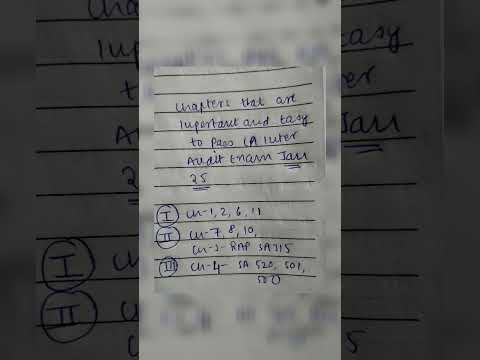 Chapters that are
Important and Easy
to pass CA Inter
Audit Exam Jan
25
I Ch-1, 2, 6, 11
II Ch-7, 8, 10,
Ch-3- RAP SA315
III Ch-4- SA 520, 501,
500